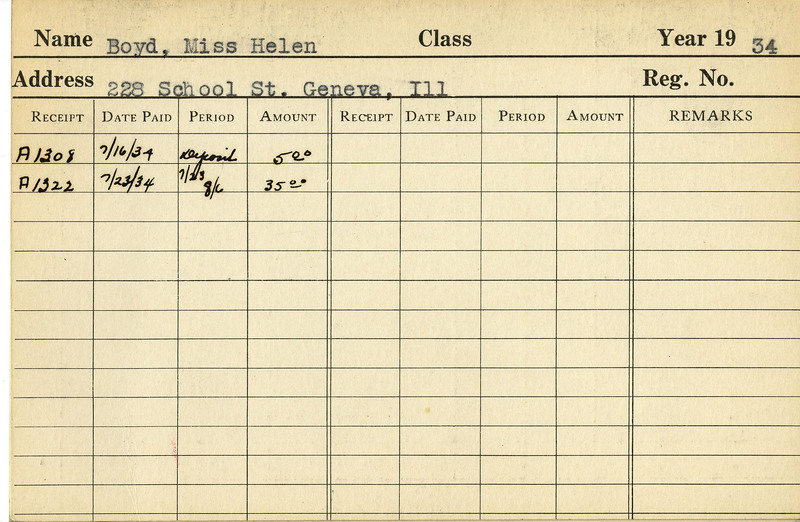 Name Boyd, Miss Helen Class Year 19 34
Address 228 School St. Geneva, Ill Reg. No.
RECEIPT DATE PAID PERIOD AMOUNT RECEIPT DATE PAID PERIOD AMOUNT REMARKS
A1308 7/16/34 Deposit 5 00
A1322 7/23/34 7/23 8/6 35 00